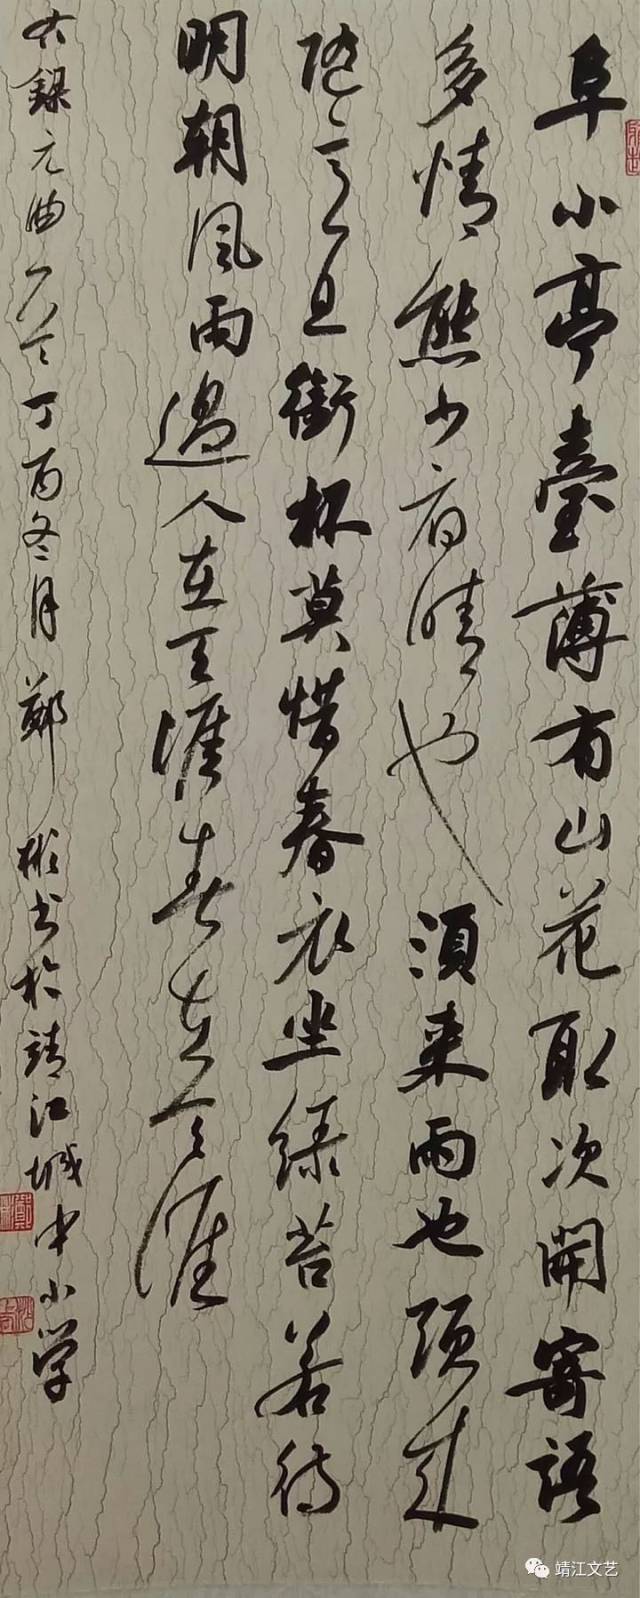 阜小亭臺薄有山花取次開寄語
多情熊少府晴也須来雨也須来
随意且銜杯莫惜春衣坐緑苔若待
明朝風雨過人在天涯春在天涯
右録元曲 丁酉冬月鄭彬书於靖江城中小学
靖江文艺